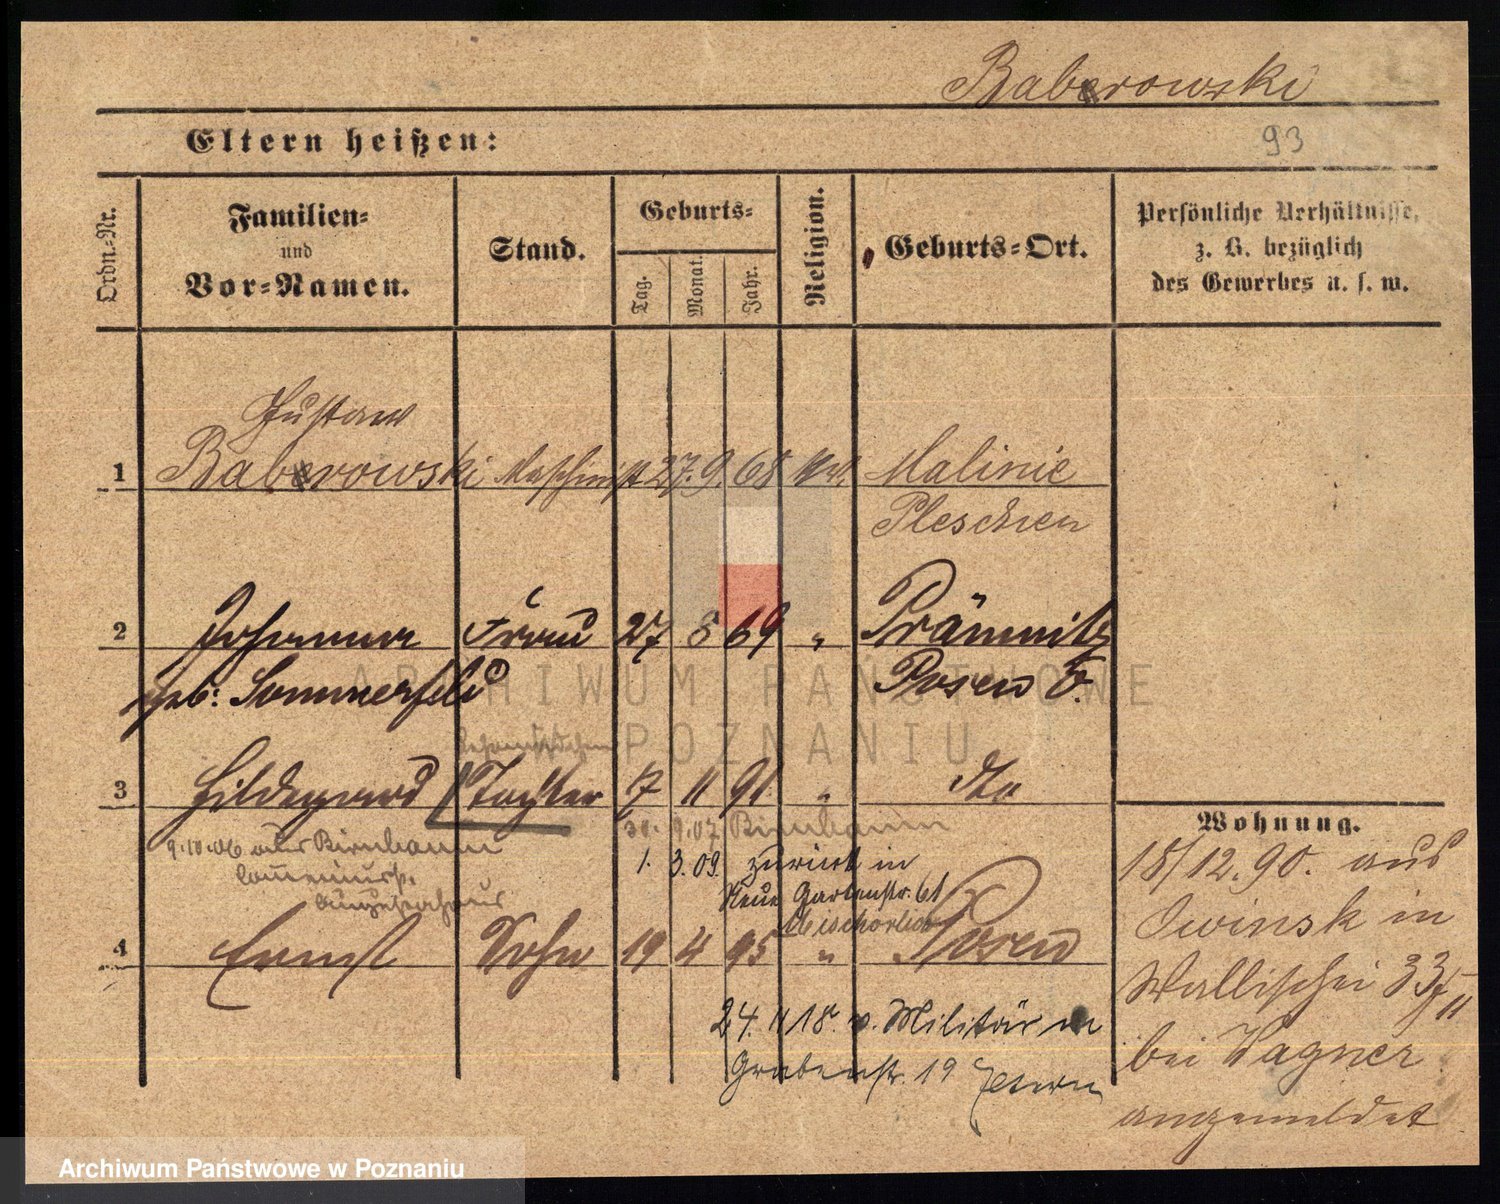 Baberowski
93
Eltern heißen:
Ordn.-Nr.
Familien-
und
Vor-Namen.
Stand.
Geburts-
Tag.
Monat.
Jahr.
Religion.
Geburts-Ort.
Persönliche Verhältnisse,
z. B. bezüglich
des Gewerbes u. s. w.
Gustaw
1 Baberowski Maschinist 27. 9. 68 Malinie
Pleschen
2 Johanna Frau 27 8 69 " Prämnitz
geb: Sommerfeld Posen O.
3 Hildegard Tochter 17 11 91 " dto
9.10.06 aus Birnbaum
30. 9.07 Birnbaum
1. 3.09. zurück in
Neue Gartenstr. 61
4 Ernst Sohn 19 4 95 " Posen
24. 11 18. v. Militär in
Grabenstr. 19 Eltern
Wohnung.
18/12.90. aus
Owinsk in
Wallischei 33/II
bei Wagner
angemeldet
ARCHIWUM PAŃSTWOWE
W POZNANIU
Archiwum Państwowe w Poznaniu